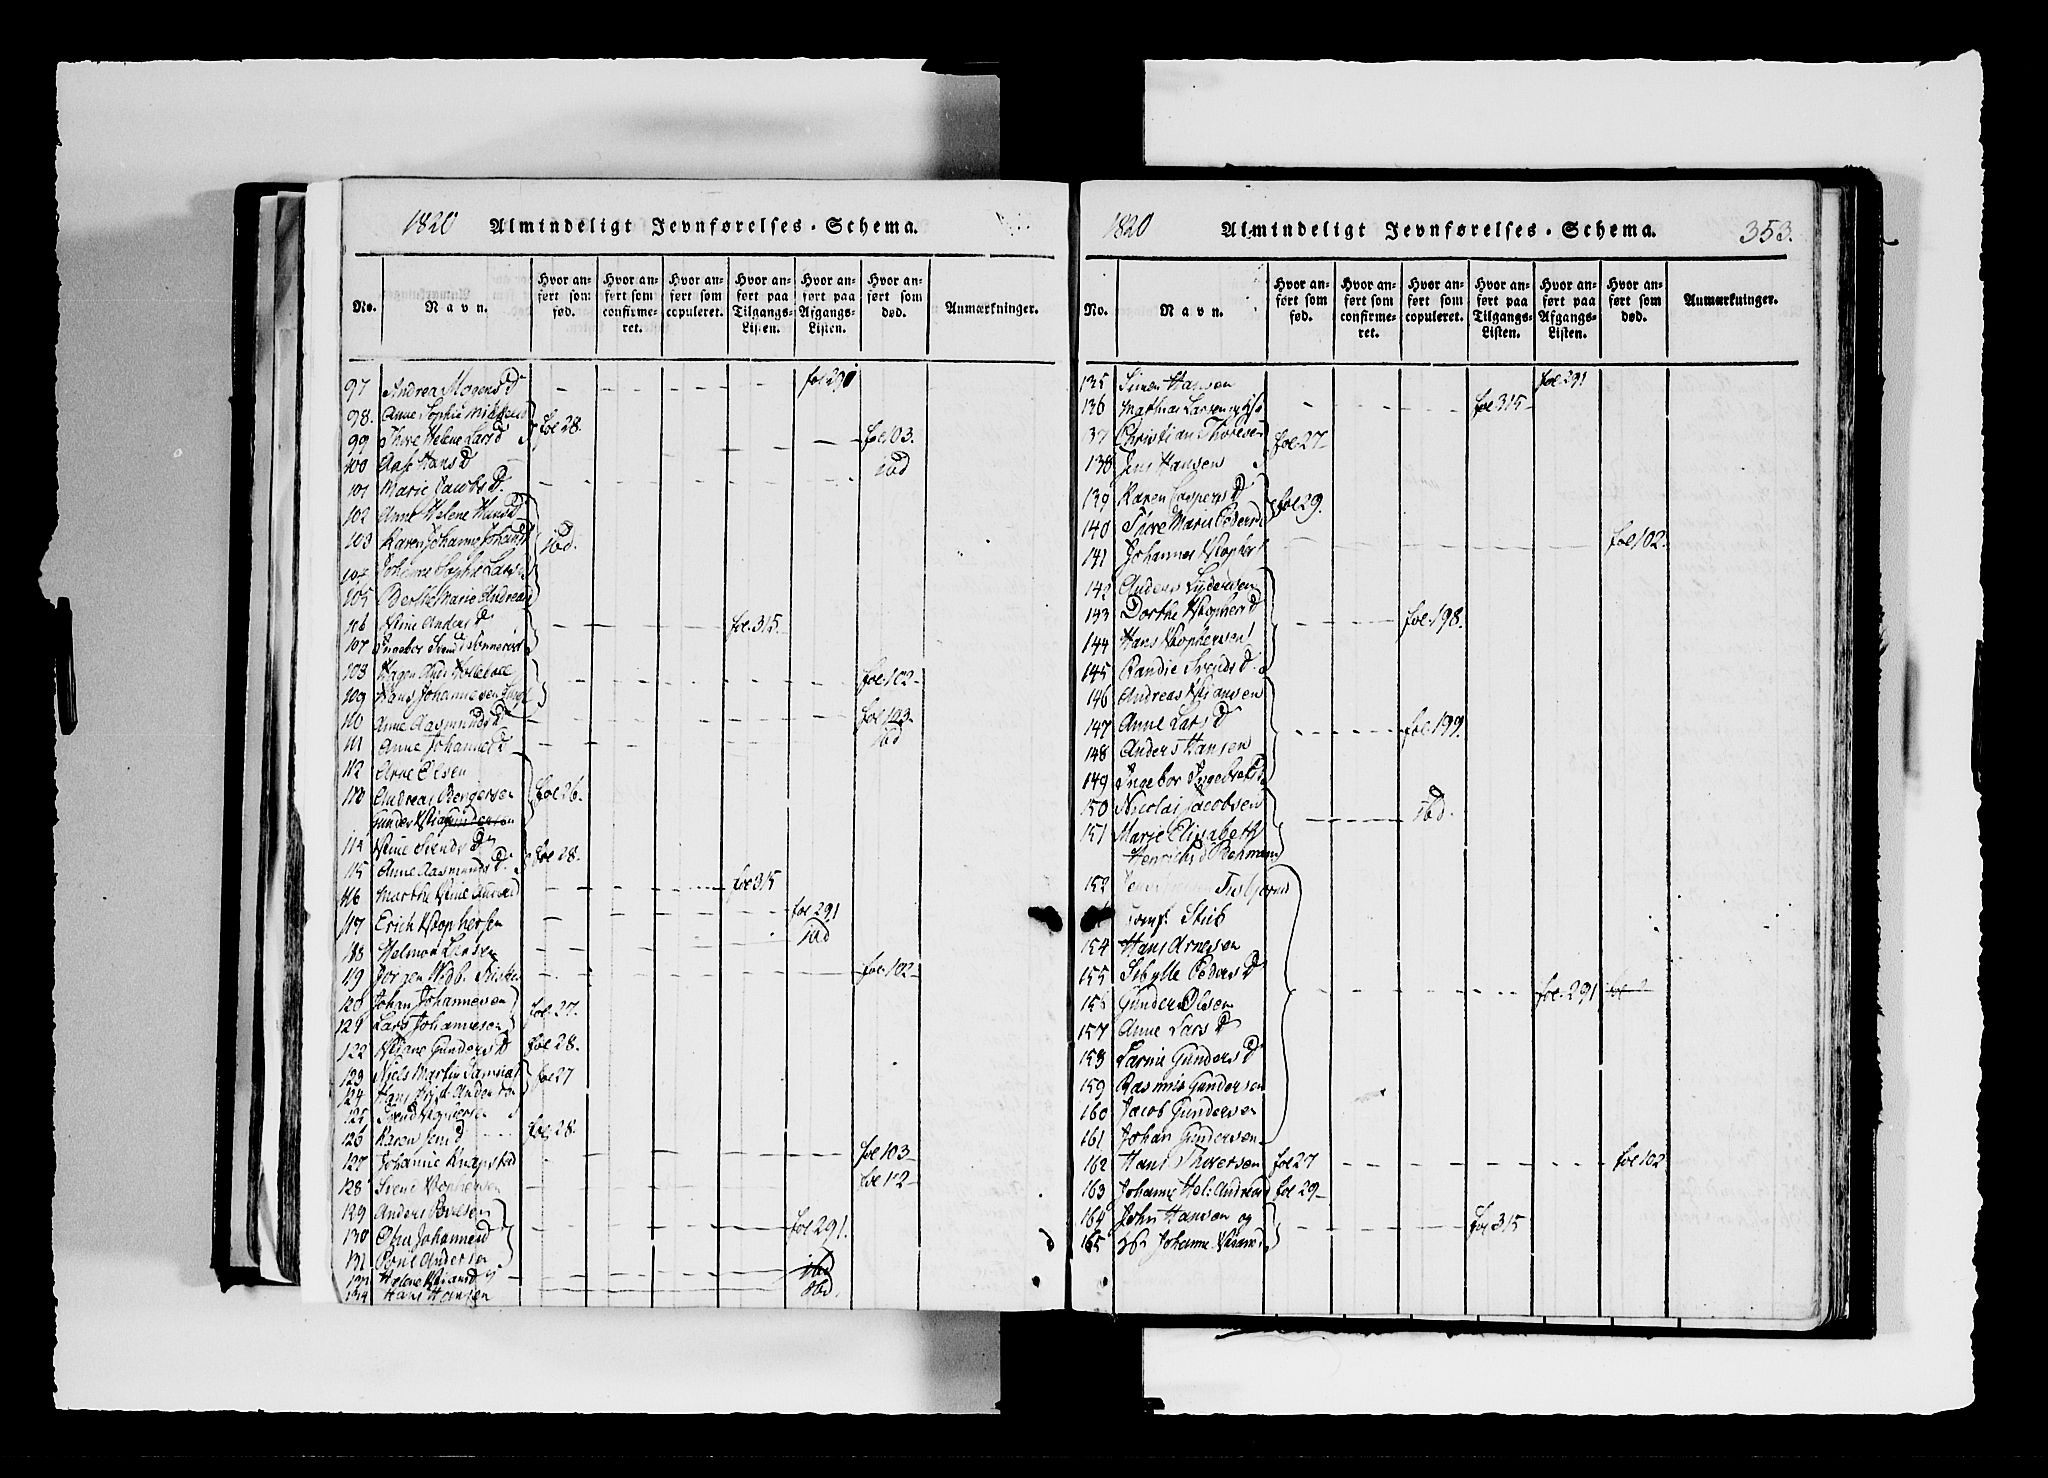 1820 Almindeligt Jevnførelses-Schema.
No. Navn. Hvor anført som fød. Hvor anført som confirmeret. Hvor anført som copuleret. Hvor anført paa Tilgangs-Listen. Hvor anført paa Afgangs-Listen. Hvor anført som død. Anmærkninger.
97 Andrea Mogens D fol 291
98. Anne Sophie
99 Thore Helene Lars d fol 28. fol 103.
100 Aase Hans D ibd
101 Marie Jacobs D.
102 Anne Helene Hans D
103 Karen Johanne ibd.
104 Johanne Sophie Lars
105 Berthe Marie Andreas
106 Stine Anders D fol. 315.
107 Ingebor Svend
108 Hagen And: fol. 102
109 Hans Johannesen
110 Anne Aasmunds D fol 103.
111 Anne Johannes D ibd
112 Arne Olsen
113 Andreas Bengersen fol 26.
Gunder
114 Stine Svends D
115 Anne Aasmunds D. fol 28.
116 Marthe Stine fol 315
117 Erich Kstophersen fol 291
118 Helmer Larsen ibd
119 Jørgen fol. 102
120 Johan Johannesen
121 Lars Johannesen fol. 27.
122 Kstjane Gunders D fol 28.
123 Niels Martin Samuel
124 Hans Andersen fol 27
125 Svend
126 Karen Jens d fol. 28.
127 Johanne Knapstad fol 103
128 Svend Kstophersen fol 102
129 Anders Poulsen
130 Johannes d fol 291.
131 Andersen
132 Helene Kstians d ibd
134 Hans Hansen ibd.
1820 Almindeligt Jevnførelses-Schema. 353.
No. Navn. Hvor anført som fød. Hvor anført som confirmeret. Hvor anført som copuleret. Hvor anført paa Tilgangs-Listen. Hvor anført paa Afgangs-Listen. Hvor anført som død. Anmærkninger.
135 Simen Hansen fol 291
136 Mathias Larsen fol 315
137 Christian Thoresen fol 27
138 Jens Hansen
139 Karen Caspers D
140 Thore Marie Peders d fol 29.
141 Johannes Kstophers fol 102.
142 Anders Lydersen
143 Dorthe Kstophers d fol. 198.
144 Hans Kstophersen
145 Randie Svends d.
146 Andreas Kstjansen
147 Anne Lars D fol. 199.
148 Anders Hansen
149 Ingebor Ingebrets D
150 Nicolai Jacobsen ibd.
151 Marie Elisabeth
Henrichs d Rehmann
152
Jomf. Stub
154 Hans Arnesen
155 Sibylle Peders D
156 Gunder Olsen fol. 291
157 Anne Lars D
158 Gunders D
159 Rasmus Gundersen
160 Jacob Gundersen
161 Johan Gundersen
162 Hans Thoresen fol 27 fol 102
163 Johanne Hel: Andreas d fol 29
164 John Hansen og fol 315
165 Johanne